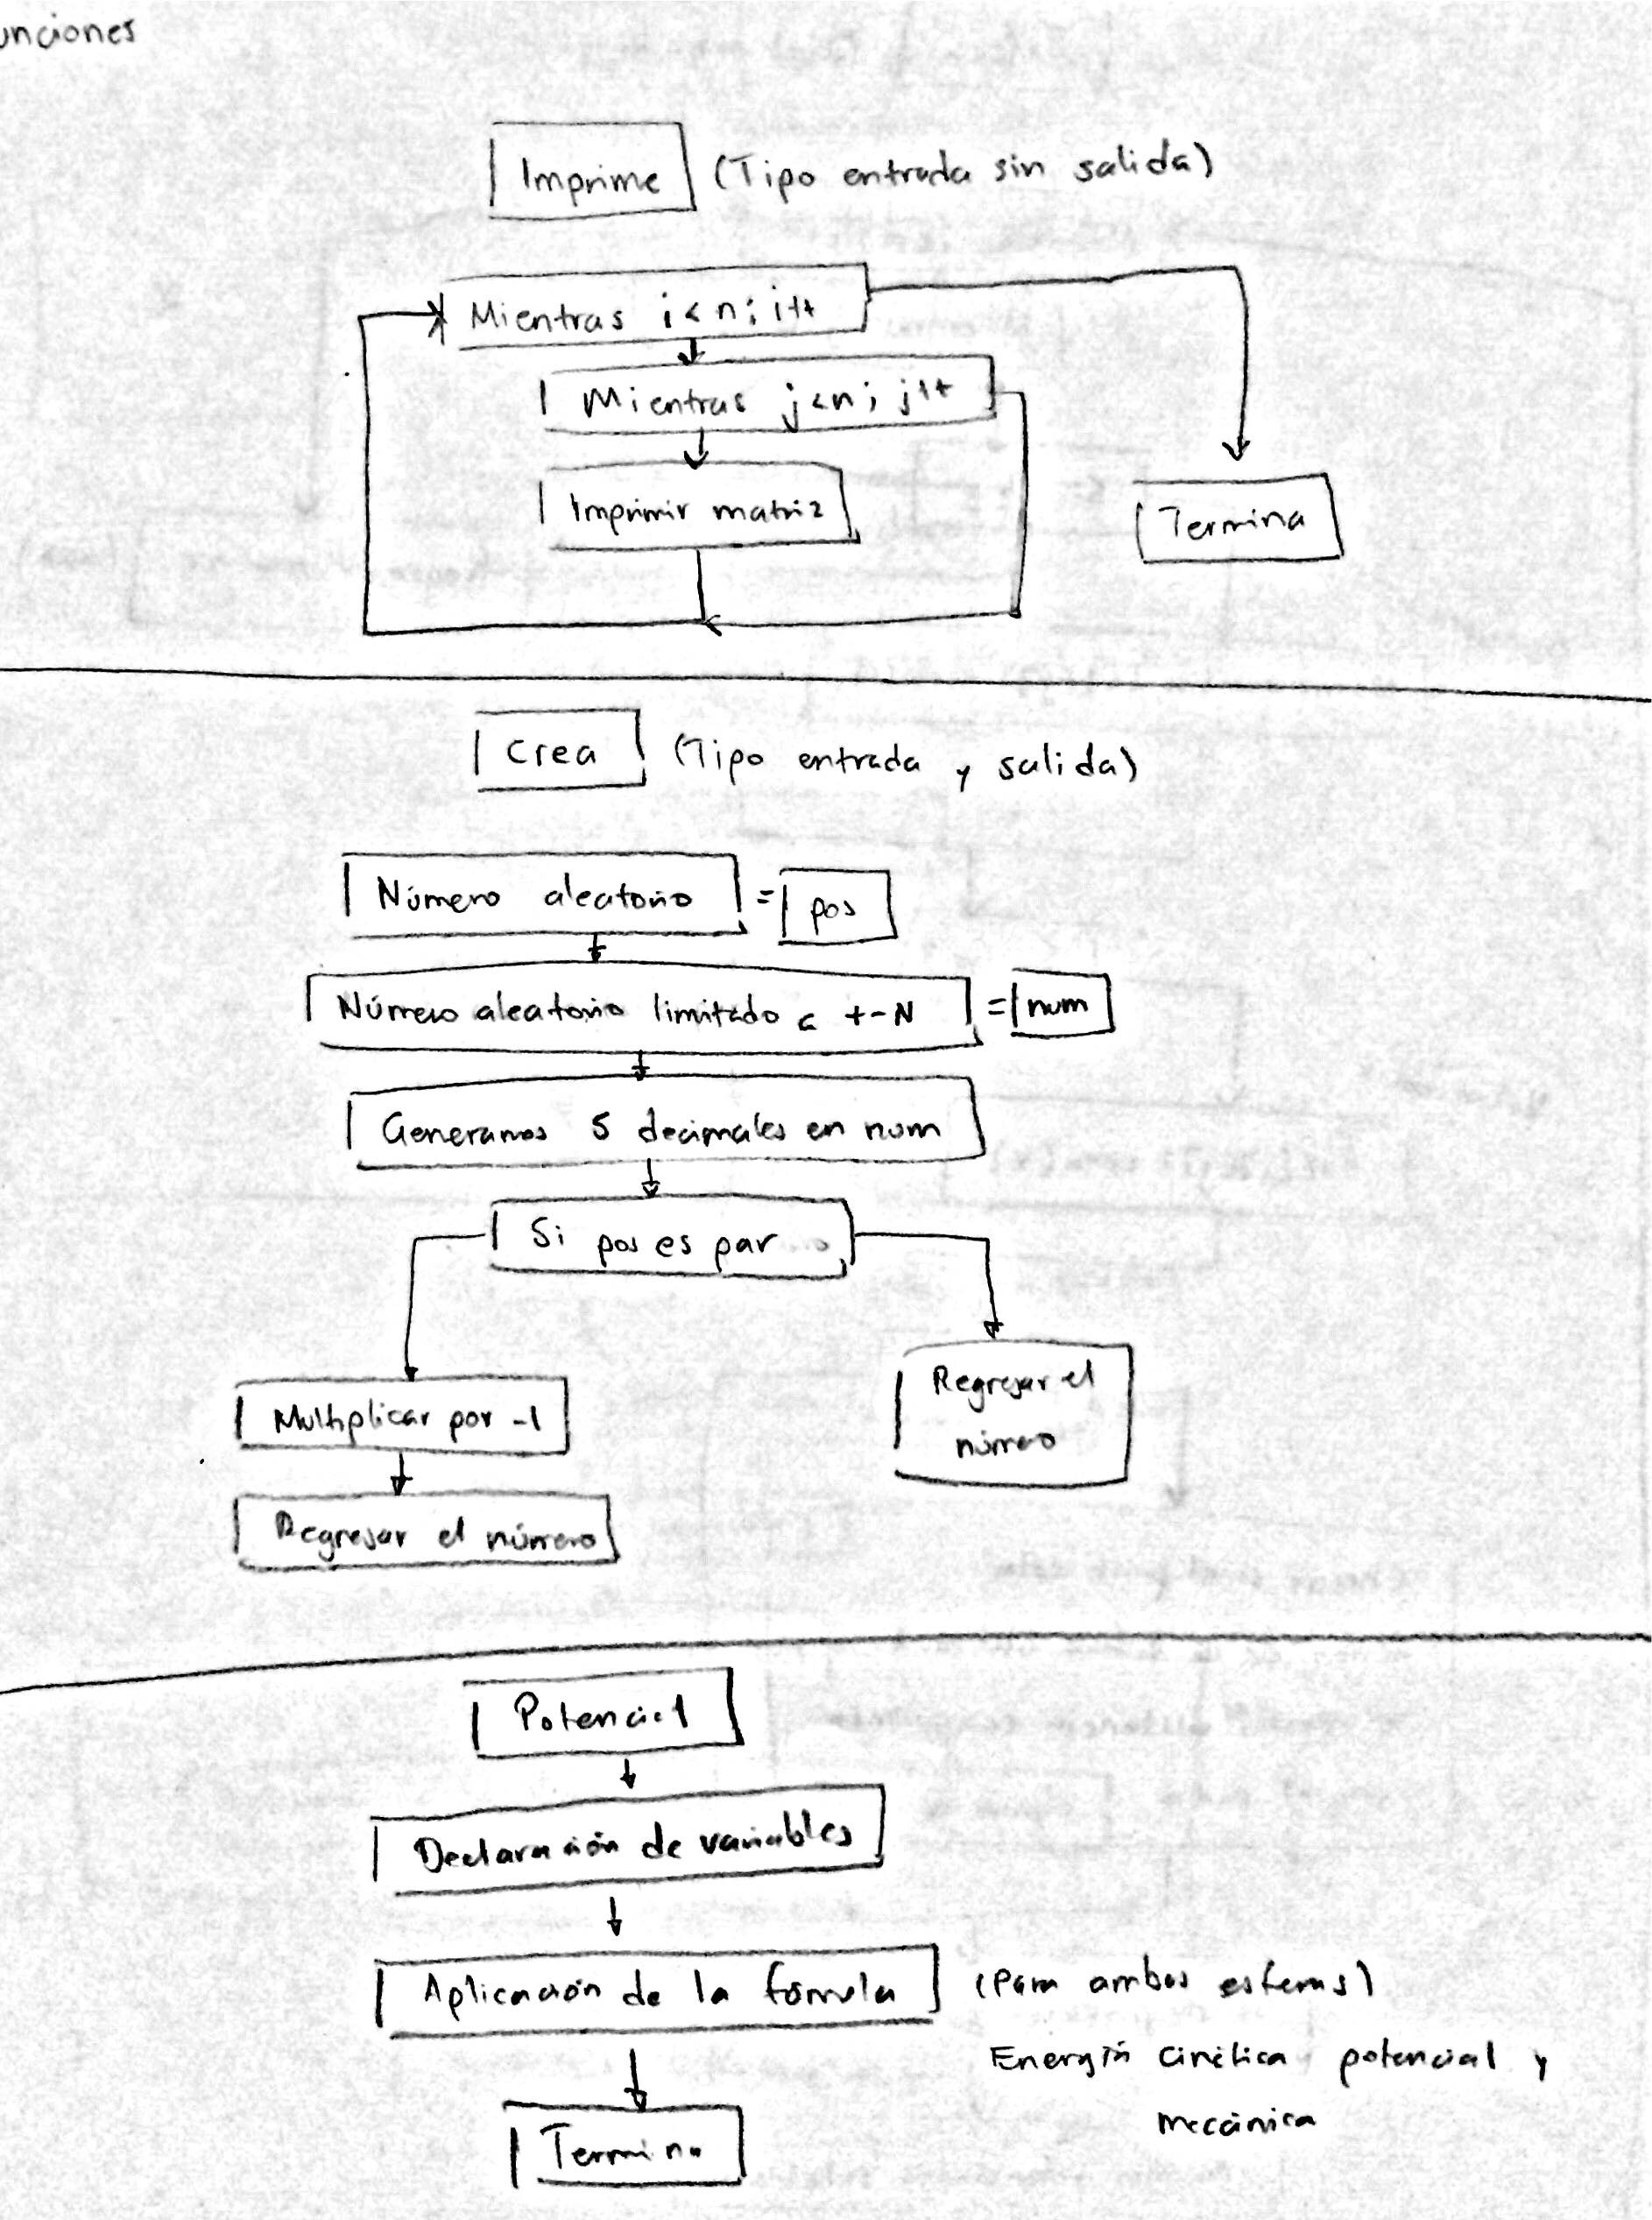 unciones
Imprime (Tipo entrada sin salida)
Mientras i<n; i++
Mientras j<n; j++
Imprimir matriz
Termina
Crea (Tipo entrada y salida)
Número aleatorio = pos
Número aleatorio limitado a +-N = num
Generamos 5 decimales en num
Si pos es par
Multiplicar por -1
Regresar el número
Regresar el
número
Potencial
Declaración de variables
Aplicación de la fórmula (Para ambas esferas)
Energía cinética potencial y
mecánica
Termina